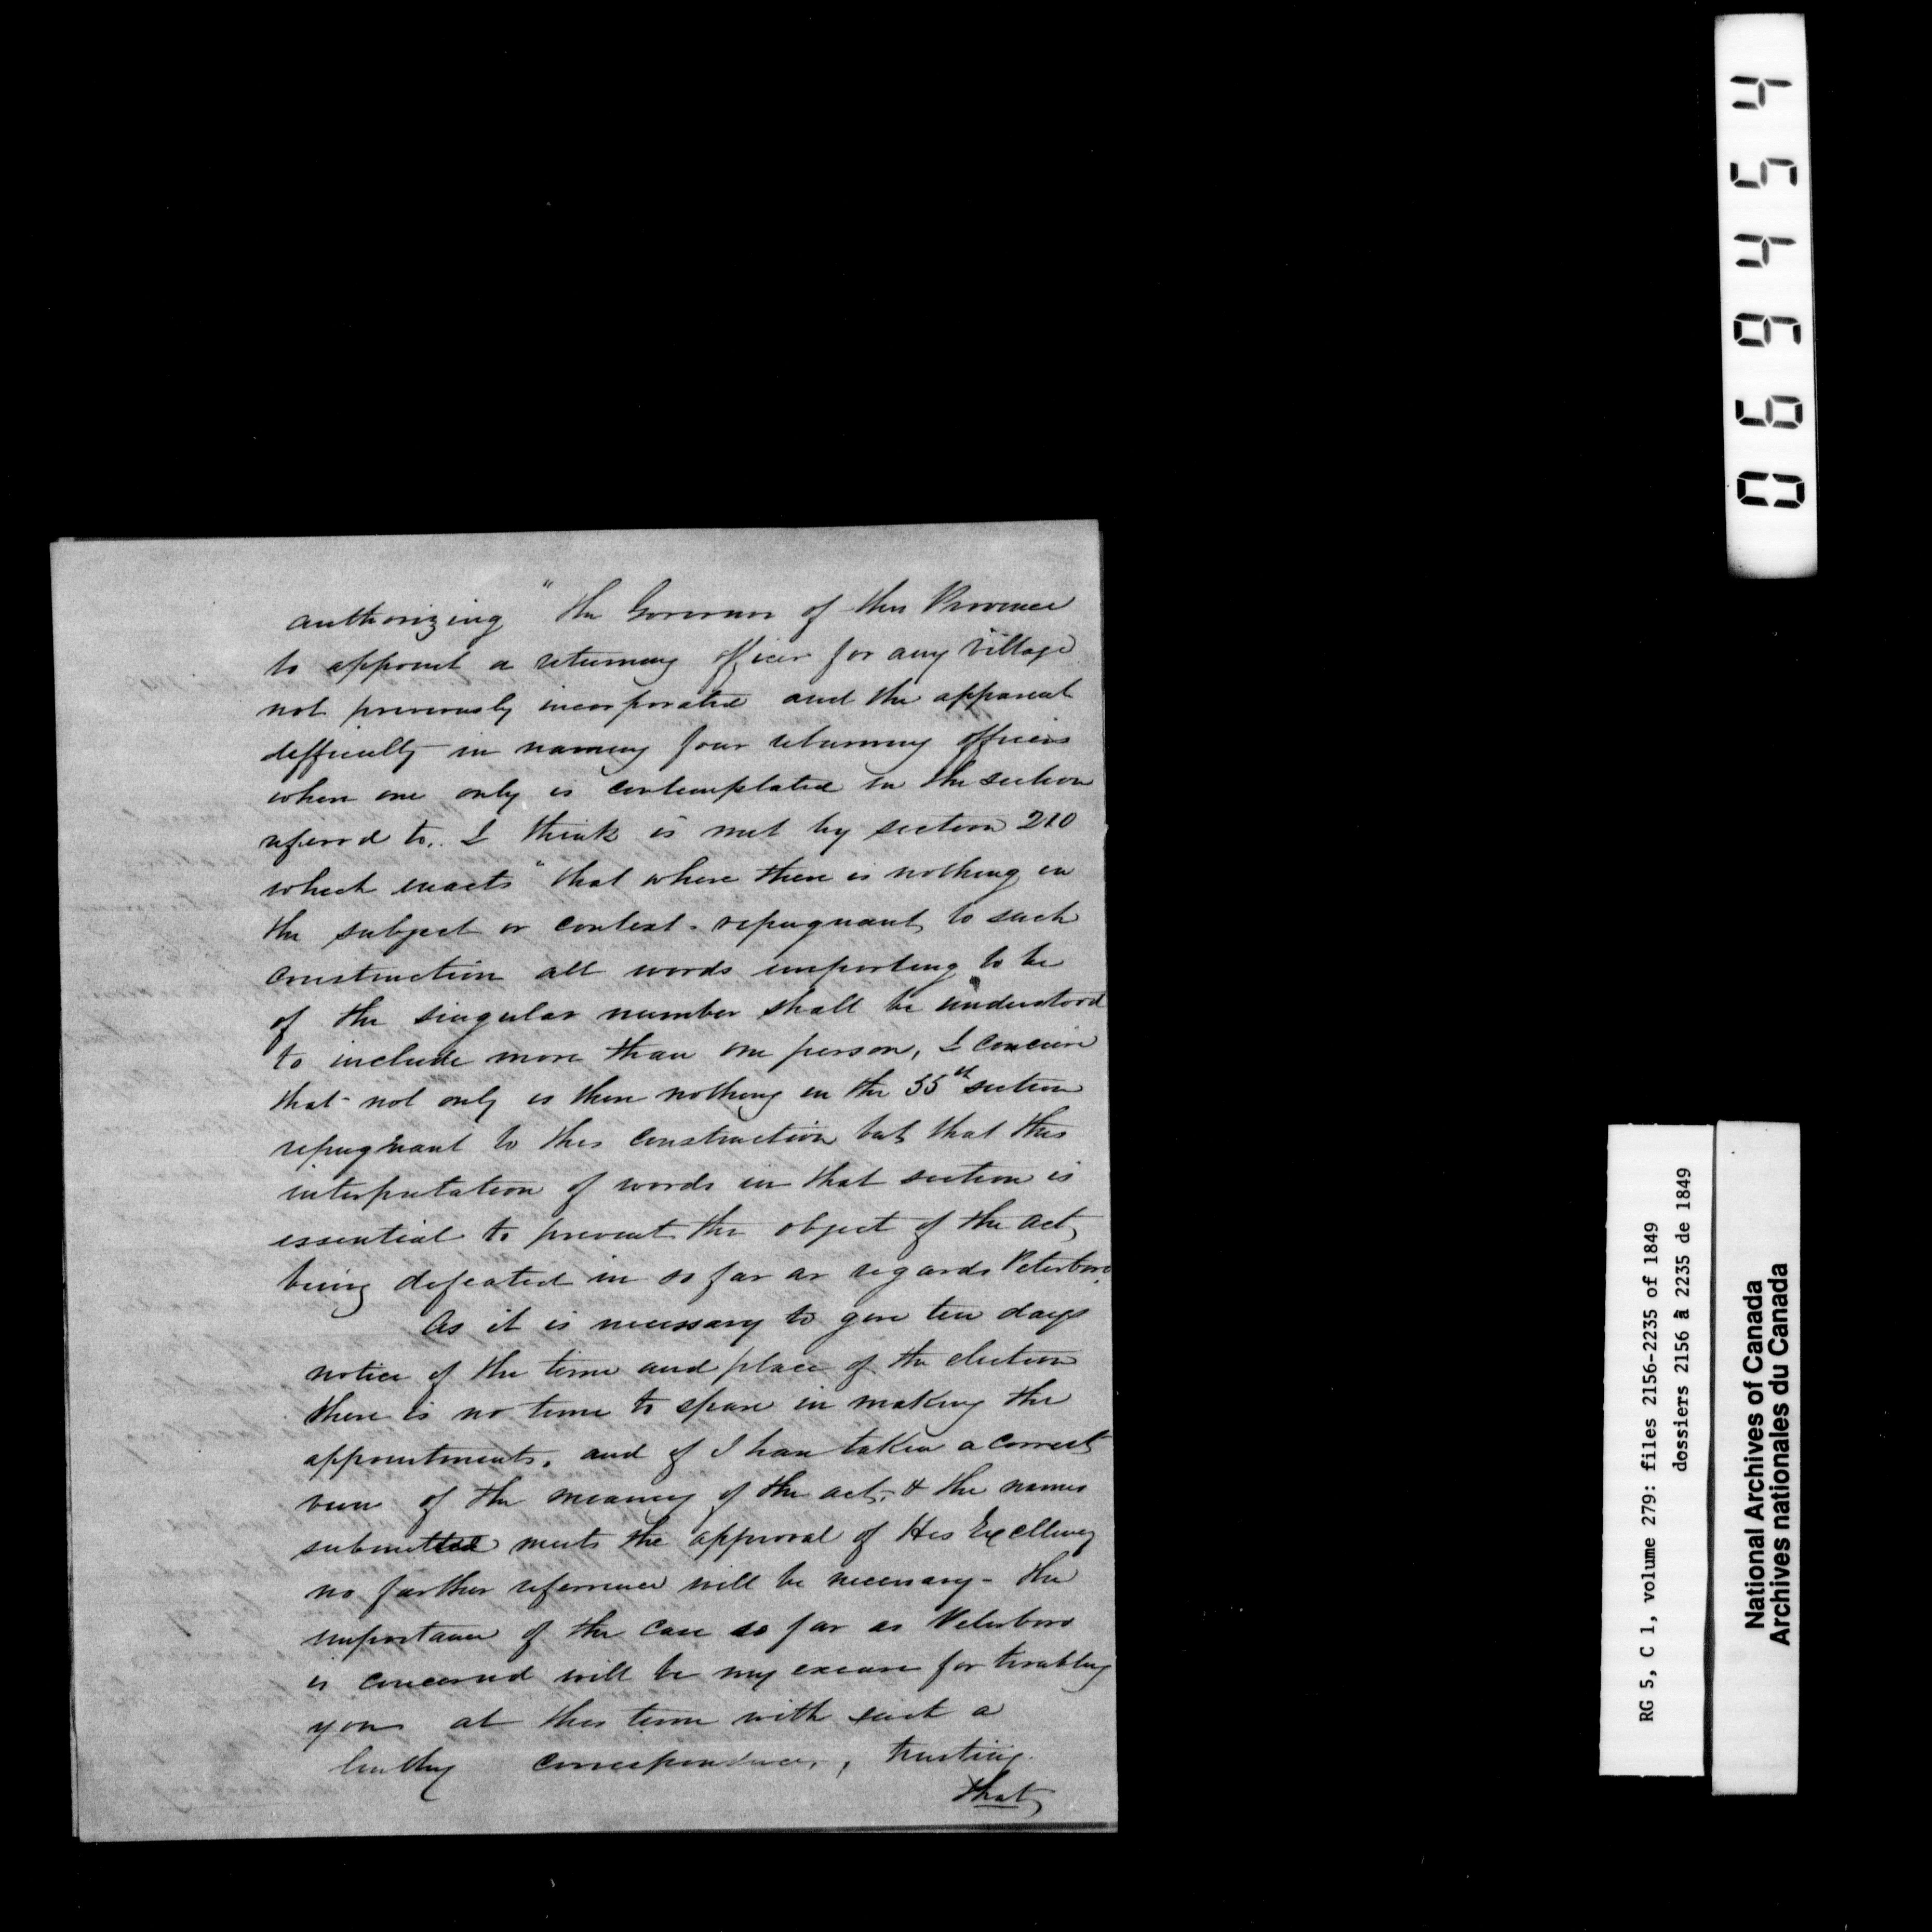 authorizing "the Governor of this Province
to appoint a returning officer for any Village
not previously incorporated and the apparent
difficulty in naming four returning officers
when one only is contemplated in the section
referred to.. I think is met by section 210
which enacts "that where there is nothing in
the subject or context - repugnant to such
construction all words importing to be
of the singular number shall be understood
to include more than one person, I conceive
that - not only is there nothing in the 55th section
repugnant to this construction but that this
interpretation of words in that section is
essential to prevent the object of the act
being defeated in so far as regards Peterboro.
As it is necessary to give ten days
notice of the time and place of the election
there is no time to spare in making the
appointments, and if I have taken a correct
view of the meaning of the act, & the names
submitted meets the approval of His Excellency
no further reference will be necessary - the
importance of the case so far as Peterboro
is concerned will be my excuse for troubling
you at this time with such a
lengthy correspondence, trusting
that
069454
RG 5, C 1, volume 279: files 2156-2235 of 1849
dossiers 2156 à 2235 de 1849
National Archives of Canada
Archives nationales du Canada